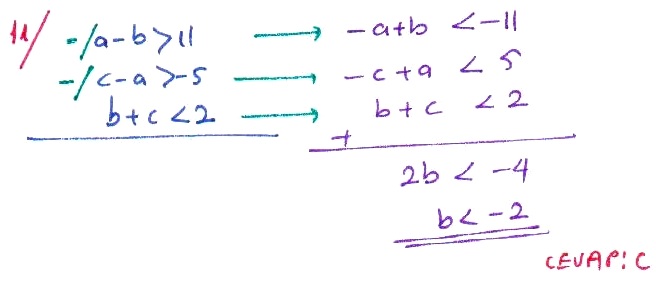 11/ -/a-b>11 → -a+b <-11
-/c-a>-5 → -c+a < 5
b+c<2 → b+c <2
+
2b < -4
b<-2
CEVAP: C